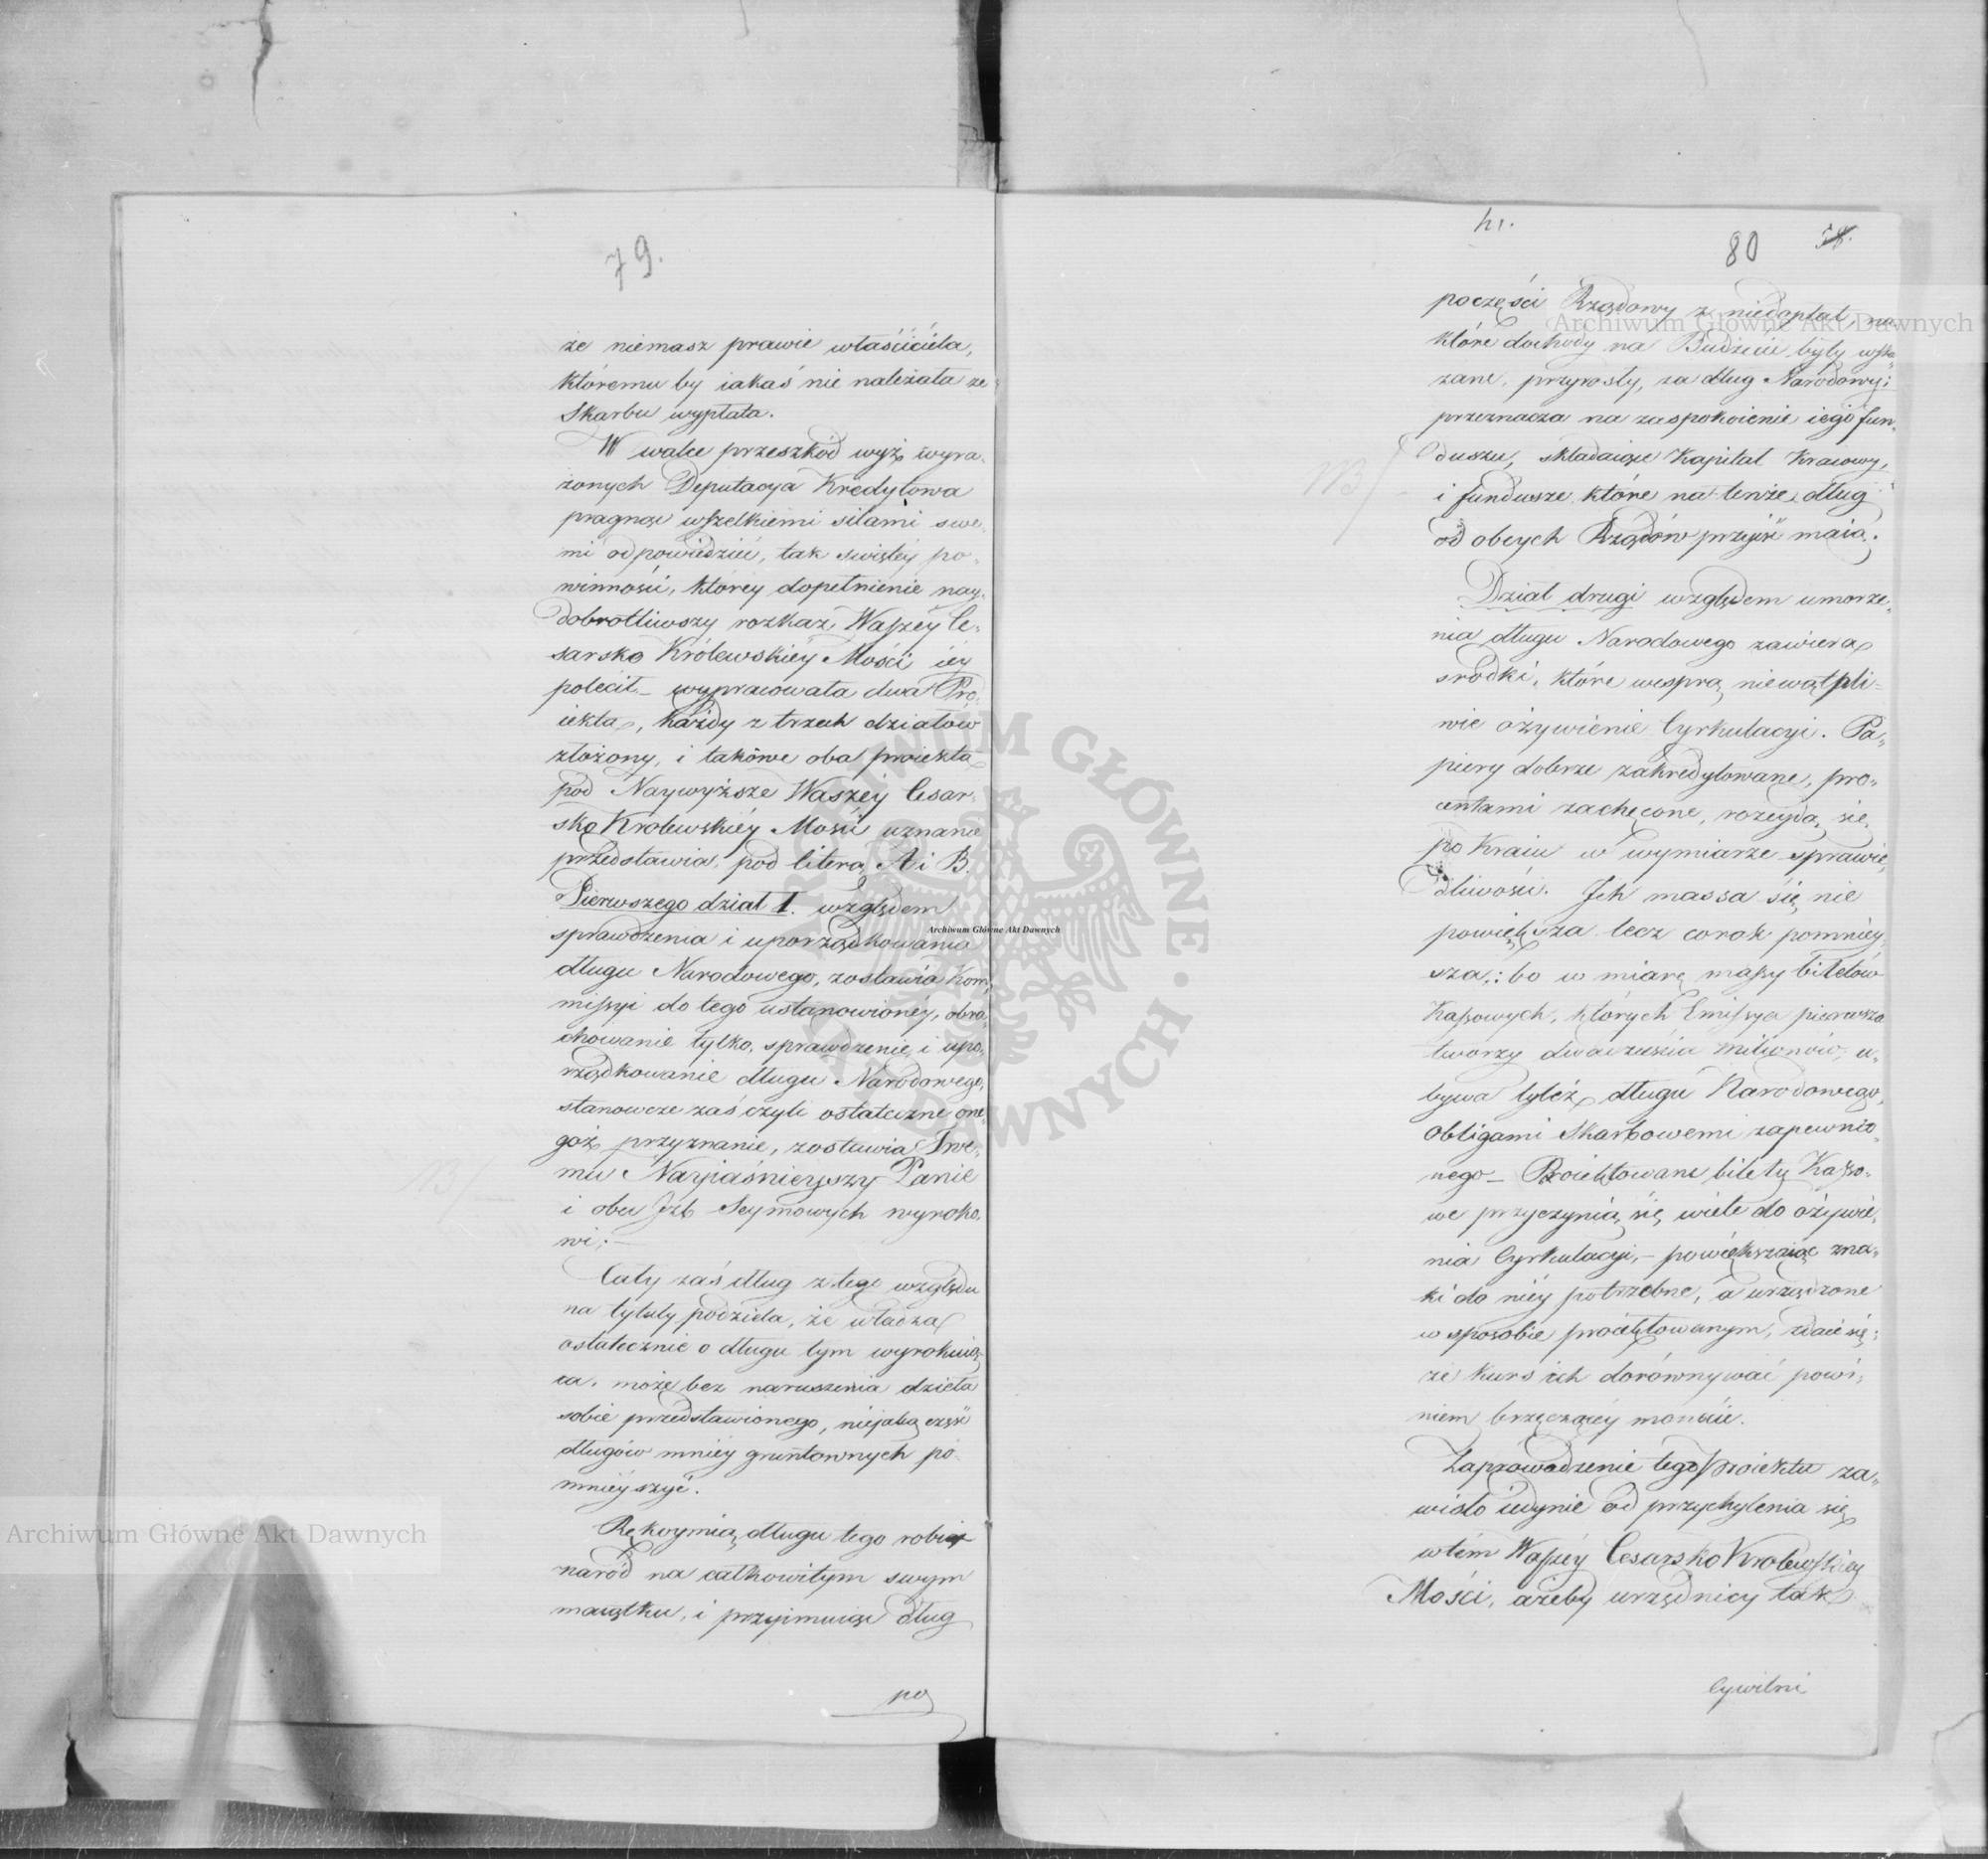 79.
że niemasz prawie właściciela,
któremu by iakaś nie należała ze
Skarbu wypłata.
W walce przeszkód wyż wyra-
żonych Deputacya Kredytowa
pragnąc wszelkiemi siłami swe-
mi odpowiedzieć, tak swiętey po-
winności, którey dopełnienie nay-
dobrotliwszy rozkaz Waszey Ce-
sarsko Królewskiey Mości iey
polecił – wypracowała dwa Pro-
iekta, każdy z trzech działów
złożony, i takowe oba proiekta
pod Naywyższe Waszey Cesar-
sko Krolewskiey Mości uznanie
przedstawia pod literą A i B.
Pierwszego dział I. względem
sprawdzenia i uporządkowania
długu Narodowego, zostawia Kom-
missyi do tego ustanowioney, obra-
chowanie tylko, sprawdzenie i upo-
rządkowanie długu Narodowego,
stanowcze zaś czyli ostateczne one-
goż przyznanie, zostawia Twe-
mu Nayiaśnieyszy Panie
i obu Izb Seymowych wyroko-
wi;–
Cały zaś dług z tego względu
na tytuły podziela, że władza
ostatecznie o długu tym wyrokuią-
ca, może bez naruszenia dzieła
sobie przedstawionego, niejaką część
długów mniey gruntownych po-
mnieyszyć.
Rękoymią długu tego robiąc
naród na całkowitym swym
maiątku, i przyimuiąc dług
po
80
poczęści Rządowy z niedopłat, na
które dochody na Budżecie były wska-
zane, przyrosły, za dług Narodowy;
przeznacza na zaspokoienie iego fun-
duszu, składaiące Kapitał Kraiowy,
i fundusze które na tenże dług
od obcych Rządów przyiść maią.
Dział drugi względem umorze-
nia długu Narodowego zawiera
srodki, które wesprą niewątpli-
wie ożywienie Cyrkulacyi. Pa-
piery dobrze zakredytowane, pro-
centami zachęcone, rozeydą się
po Kraiu w wymiarze sprawie-
dliwości. Ich massa się nie
powiększa lecz corok pomniey-
sza,: bo w miarę massy biletów
Kassowych, których Emissya pierwsza
tworzy dwadzieścia milionów, u-
bywa tyleż długu Narodowego,
Obligami Skarbowemi zapewnio-
nego – Proiektowane bilety Kasso-
we przyczynią się wiele do ożywie-
nia Cyrkulacyi, – powiększaiąc zna-
ki do niey potrzebne, a urządzone
w sposobie proiektowanym, zdaie się:
że kurs ich dorównywać powi-
niem brzęczącey monecie.
Zaprowadzenie tego proiektu za-
wisło iedynie od przychylenia się
w tém Waszey Cesarsko Krolewskiey
Mości, ażeby urzędnicy tak
Cywilni
Archiwum Główne Akt Dawnych
Archiwum Główne Akt Dawnych
Archiwum Główne Akt Dawnych
ARCHIWUM GŁÓWNE AKT DAWNYCH